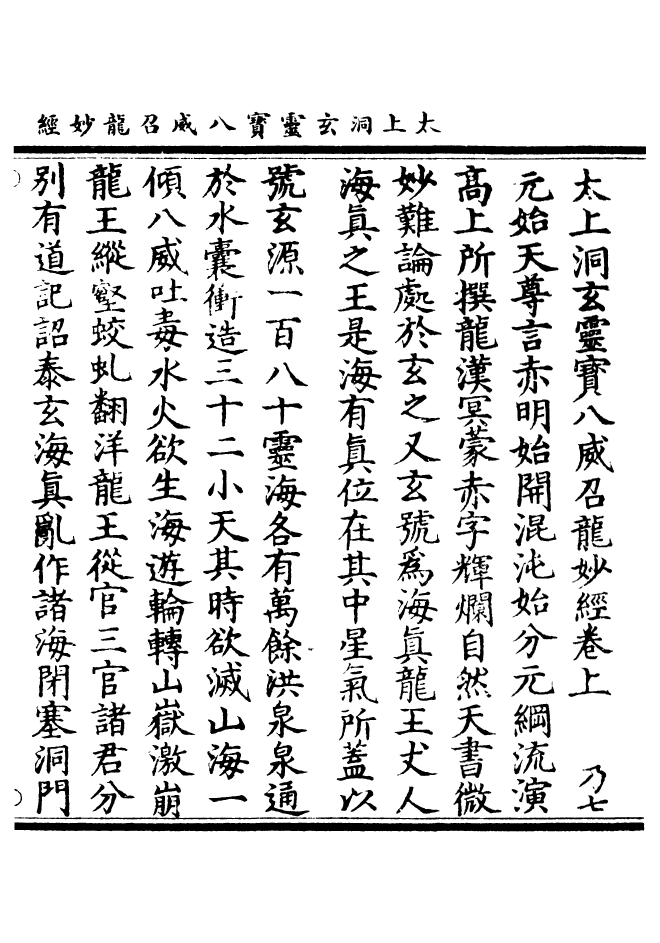 太上洞玄靈寶八威召龍妙經
太上洞玄靈寶八威召龍妙經卷上　乃七
元始天尊言赤明始開混沌始分元綱流演
高上所撰龍漢冥蒙赤字輝爛自然天書微
妙難論處於玄之又玄號爲海眞龍王丈人
海眞之王是海有眞位在其中星氣所蓋以
號玄源一百八十靈海各有萬餘洪泉泉通
於水囊衝造三十二小天其時欲滅山海一
傾八威吐毒水火欲生海遊輪轉山嶽激崩
龍王縱壑蛟虬翻洋龍王從官三官諸君分
別有道記詔泰玄海眞亂作諸海閉塞洞門